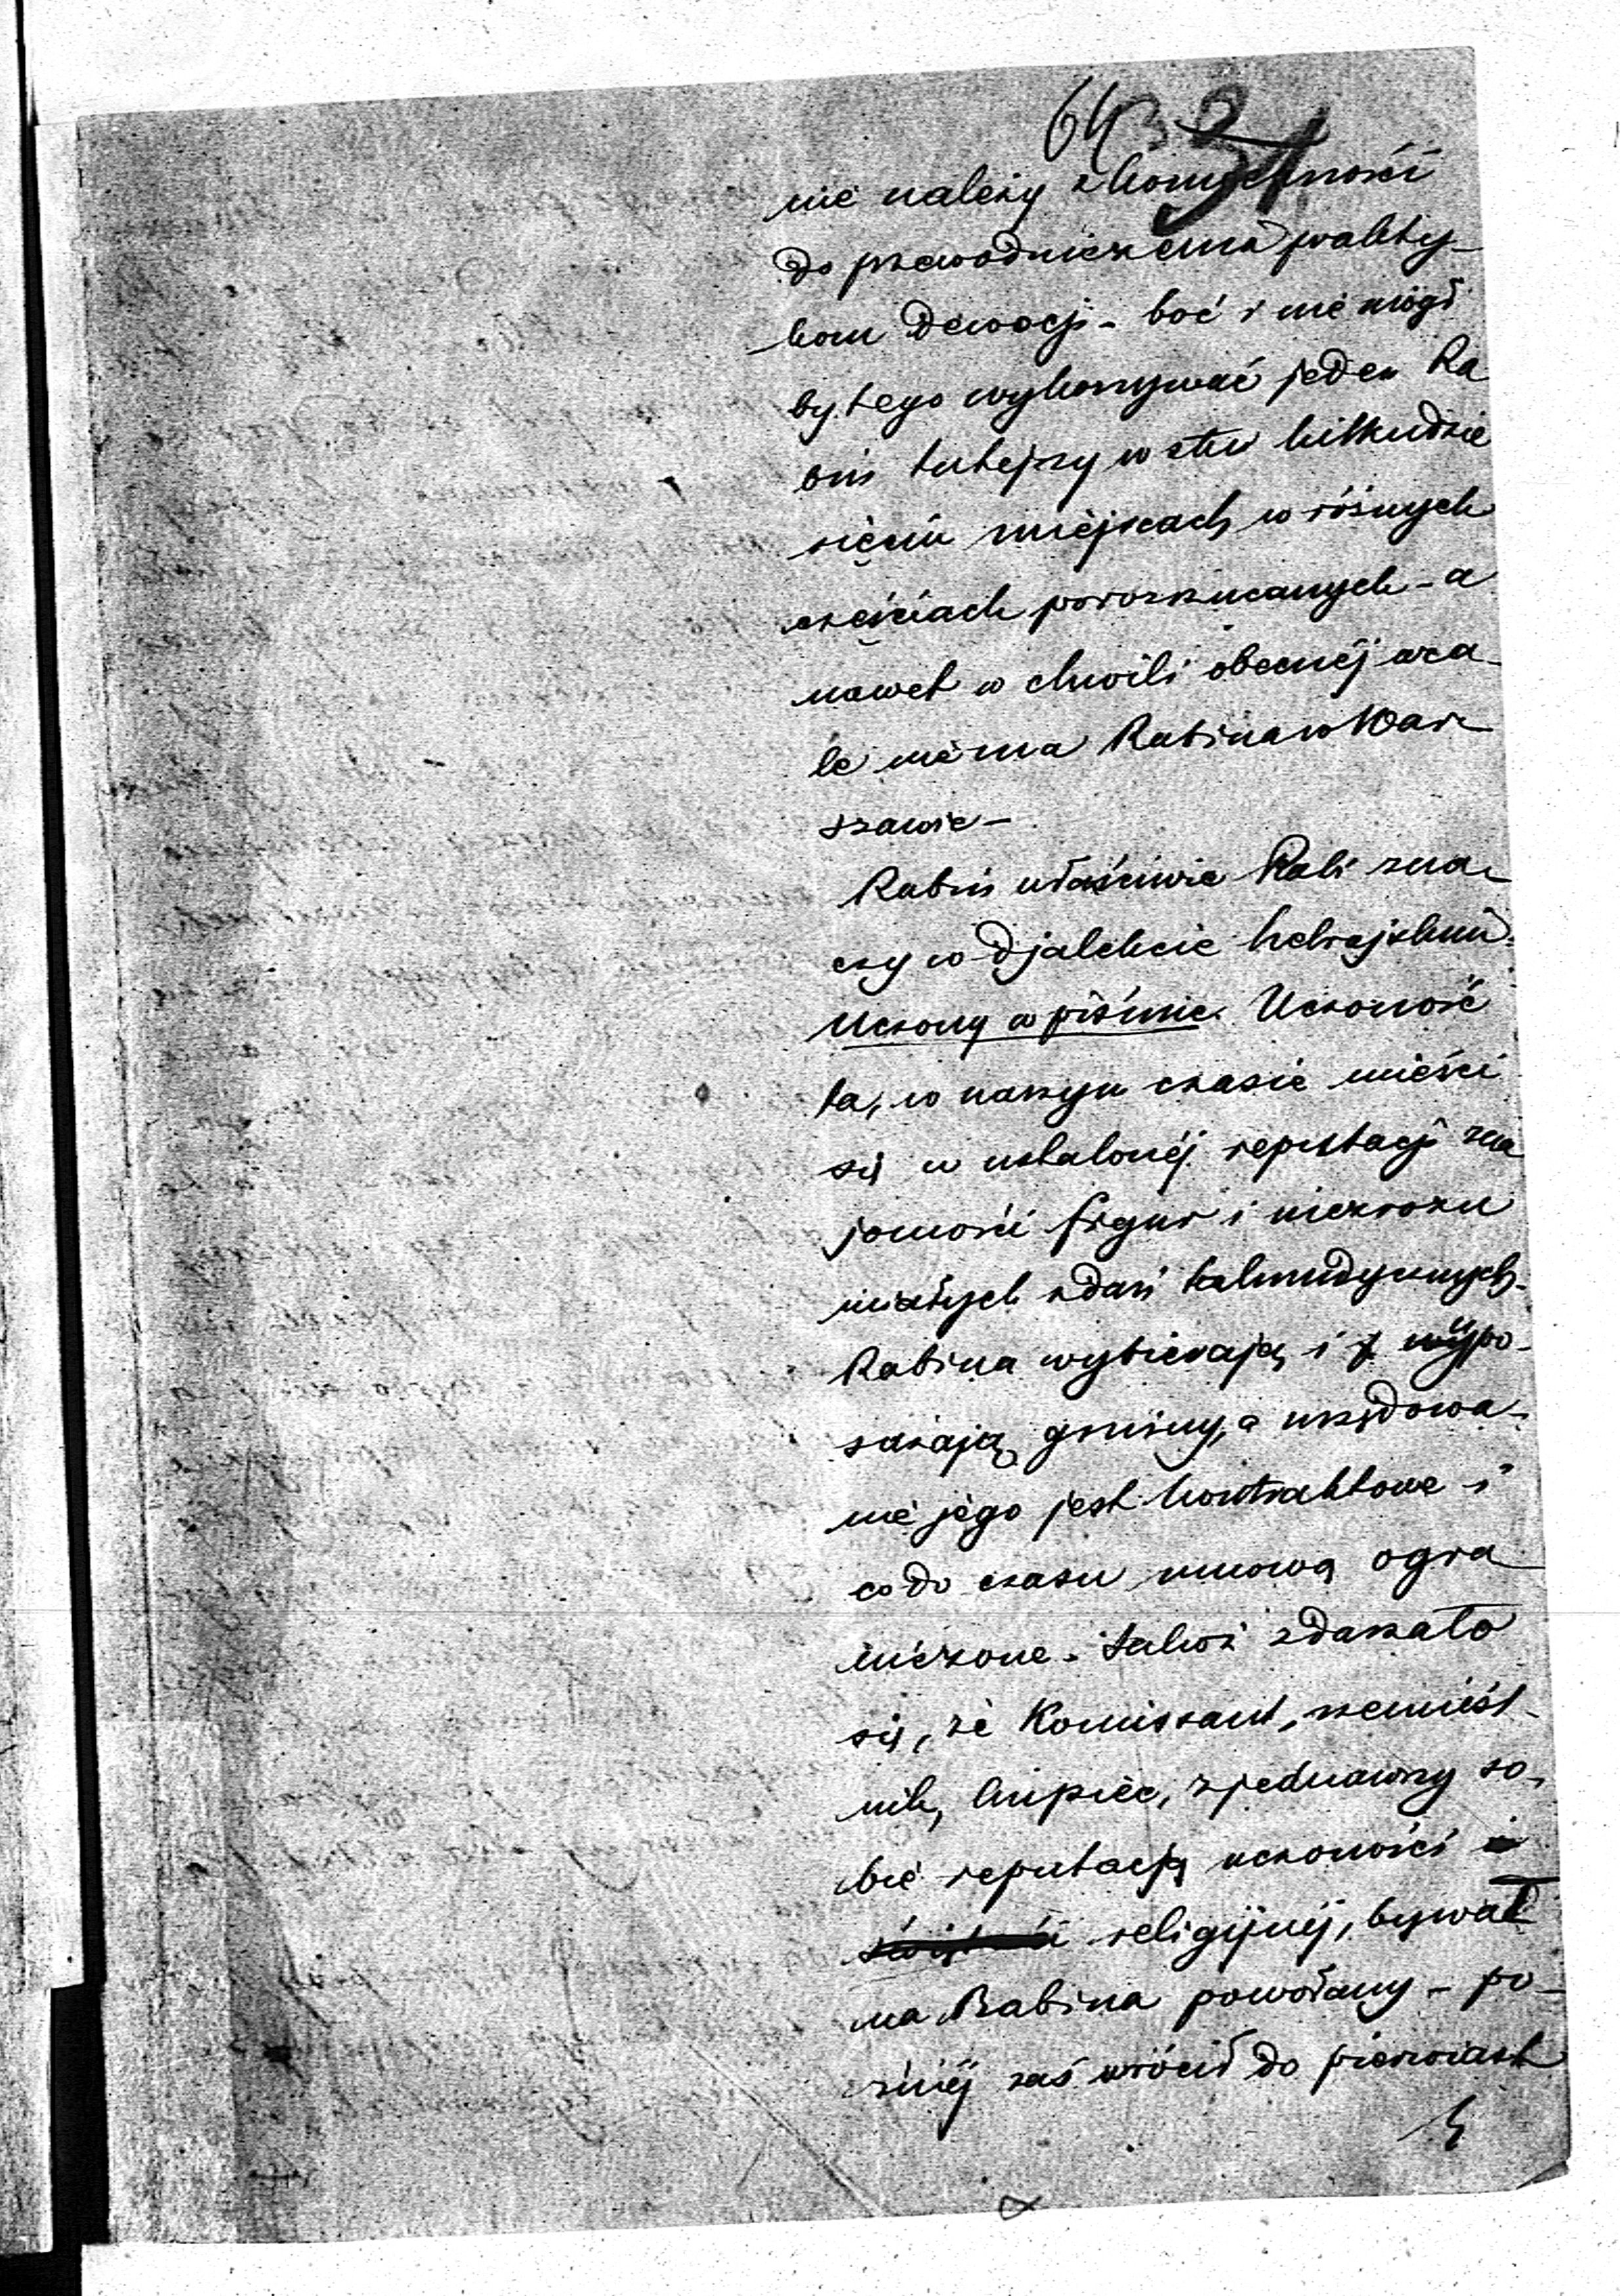 64 31
nie należy z konieczności
do przewodniczenia prakty-
kom dewocji - boć i nie mógł
by tego wykonywać jeden Ra
bin tutejszy w stu kilkudzie
sięciu miejscach, w różnych
częściach porozrzucanych - a
nawet w chwili obecnéj wca-
le niema Rabina w War-
szawie -
Rabin właściwie Rabi zna-
czy w djalekcie hebrajskim:
Uczony w piśmie. Uczoność
ta, w naszym czasie mieści
się w ustalonéj reputacji zna
jomości figur i niezrozu
miałych zdań talmudycznych.
Rabina wybierają i wypo-
sażają gminy, a urzędowa-
nie jego jest kontraktowe i
co do czasu umową ogra
niczone. Jakoż zdarzało
się, że Komissant, rzemieśl-
nik, kupiec, zjednawszy so-
bie reputacją uczoności i
religijnéj, bywał
na Rabina powołany - po-
źniéj zaś wrócił do pierwiast